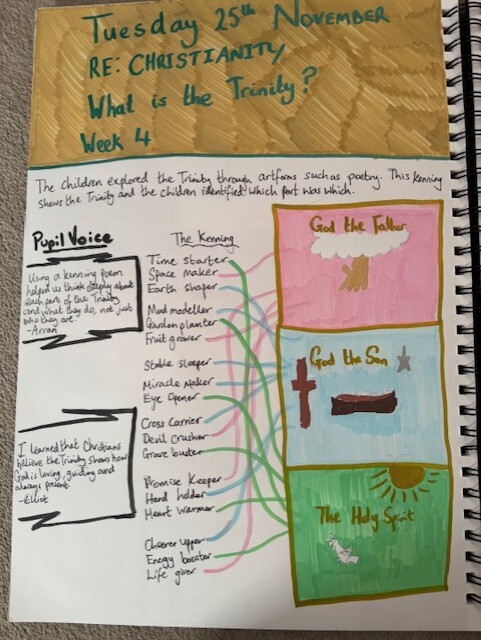 Tuesday 25th November
RE: CHRISTIANITY
What is the Trinity?
Week 4
The children explored the Trinity through artforms such as poetry. This kenning
shows the Trinity and the children identified which part was which.
Pupil Voice
Using a kenning poem
helped us think deeply about
each part of the Trinity
and what they do, not just
who they are.
-Arran
I learned that Christians
believe the Trinity shows how
God is loving, guiding and
always present.
-Elliot
The Kenning
Time starter
Space maker
Earth shaper
Mud modeller
Garden planter
Fruit grower
Stable sleeper
Miracle Maker
Eye Opener
Cross Carrier
Devil Crusher
Grave buster
Promise Keeper
Hand holder
Heart warmer
Cheerer upper
Energy booster
Life giver
God the Father
God the Son
The Holy Spirit